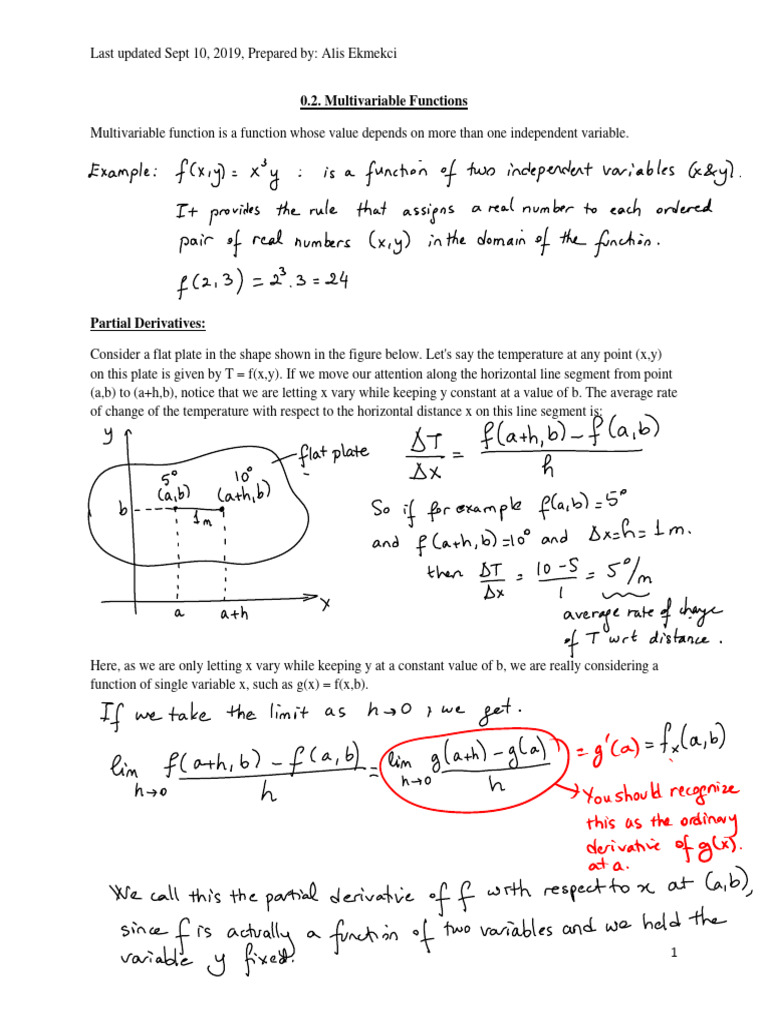 Last updated Sept 10, 2019, Prepared by: Alis Ekmekci
0.2. Multivariable Functions
Multivariable function is a function whose value depends on more than one independent variable.
Example: f(x,y) = x³y : is a function of two independent variables (x&y).
It provides the rule that assigns a real number to each ordered
pair of real numbers (x,y) in the domain of the function.
f(2,3) = 2³.3 = 24
Partial Derivatives:
Consider a flat plate in the shape shown in the figure below. Let's say the temperature at any point (x,y)
on this plate is given by T = f(x,y). If we move our attention along the horizontal line segment from point
(a,b) to (a+h,b), notice that we are letting x vary while keeping y constant at a value of b. The average rate
of change of the temperature with respect to the horizontal distance x on this line segment is:
y
flat plate
5° 10°
(a,b) (a+h,b)
b
1m
a a+h x
ΔT/Δx = (f(a+h,b) – f(a,b))/h
So if for example f(a,b)=5°
and f(a+h,b)=10° and Δx=h=1m.
then ΔT/Δx = (10-5)/1 = 5°/m
average rate of change
of T wrt distance.
Here, as we are only letting x vary while keeping y at a constant value of b, we are really considering a
function of single variable x, such as g(x) = f(x,b).
If we take the limit as h→0, we get.
lim h→0 (f(a+h,b) – f(a,b))/h = lim h→0 (g(a+h) – g(a))/h = g'(a) = fₓ(a,b)
→ You should recognize
this as the ordinary
derivative of g(x).
at a.
We call this the partial derivative of f with respect to x at (a,b),
since f is actually a function of two variables and we held the
variable y fixed.
1